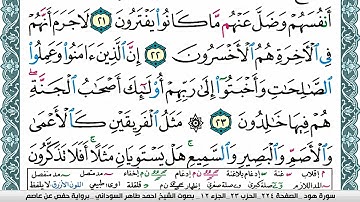 أَنفُسَهُمْ وَضَلَّ عَنْهُم مَّا كَانُوا۟ يَفْتَرُونَ ٢١ لَا جَرَمَ أَنَّهُمْ
فِى ٱلْـَٔاخِرَةِ هُمُ ٱلْأَخْسَرُونَ ٢٢ إِنَّ ٱلَّذِينَ ءَامَنُوا۟ وَعَمِلُوا۟
ٱلصَّـٰلِحَـٰتِ وَأَخْبَتُوٓا۟ إِلَىٰ رَبِّهِمْ أُو۟لَـٰٓئِكَ أَصْحَـٰبُ ٱلْجَنَّةِ ۖ
هُمْ فِيهَا خَـٰلِدُونَ ٢٣ ۞ مَثَلُ ٱلْفَرِيقَيْنِ كَٱلْأَعْمَىٰ
وَٱلْأَصَمِّ وَٱلْبَصِيرِ وَٱلسَّمِيعِ ۚ هَلْ يَسْتَوِيَانِ مَثَلًا ۚ أَفَلَا تَذَكَّرُونَ
سورة هود . الصفحة ٢٢٤ . الحزب ٢٣ . الجزء ١٢ . بصوت الشيخ احمد طاهر السوداني . برواية حفص عن عاصم